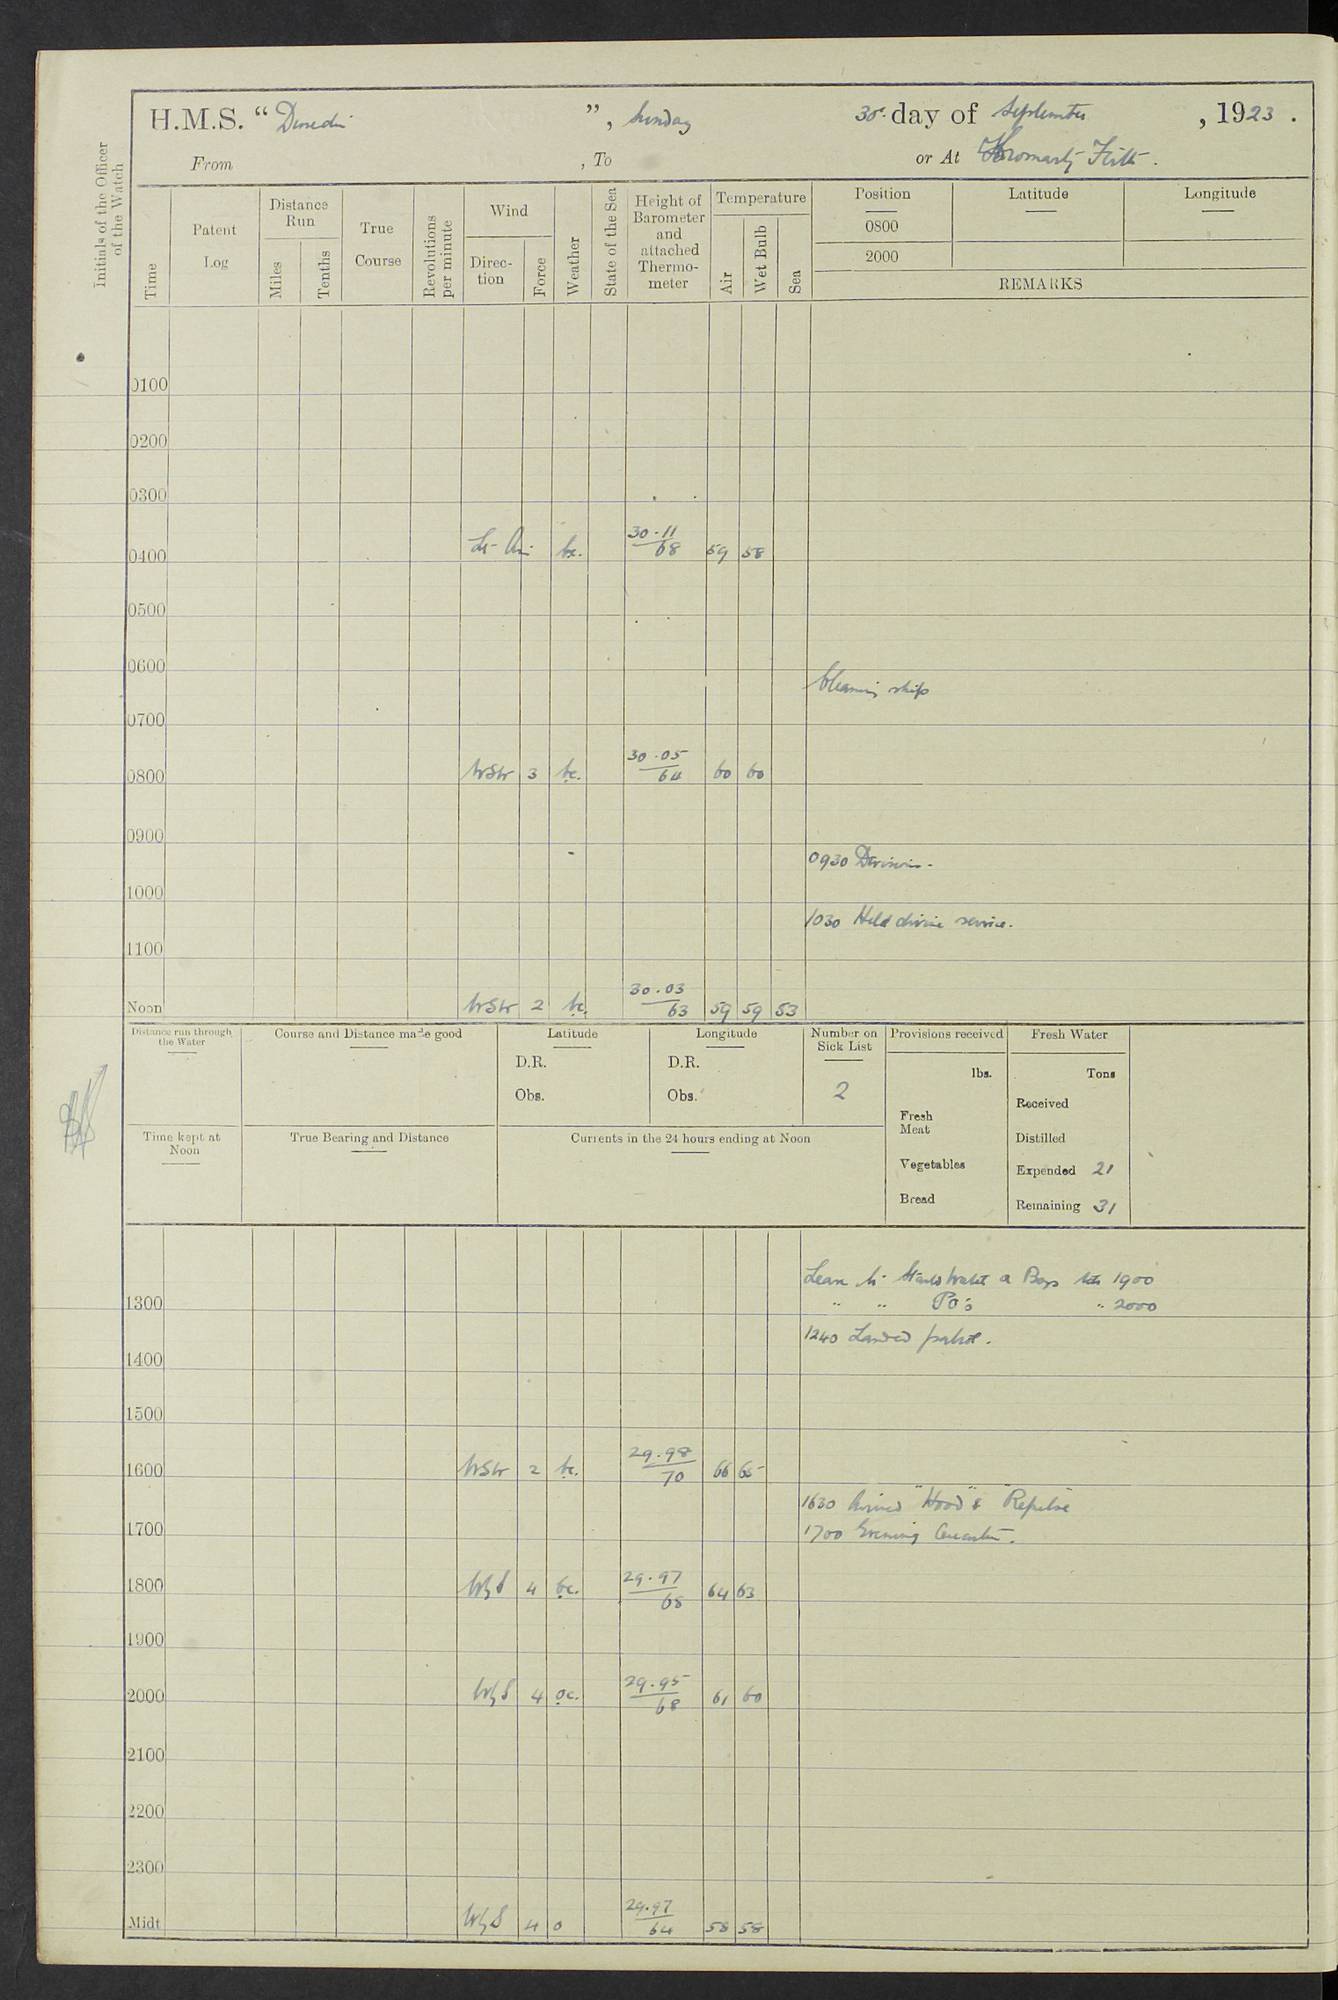 H.M.S. “ Dunedin ”, Sunday 30 day of September, 1923.
From , To or At Cromarty Firth.
Initials of the Officer of the Watch
Time
Patent Log
Distance Run
Miles
Tenths
True Course
Revolutions per minute
Wind
Direction
Force
Weather
State of the Sea
Height of Barometer and attached Thermometer
Temperature
Air
Wet Bulb
Sea
Position Latitude Longitude
0800
2000
REMARKS
0100
0200
0300
0400 Lt Air bc. 30.11 68 59 58
0500
0600
Cleaning ship
0700
0800 WSW 3 bc. 30.05 64 60 60
0900
0930 Divisions.
1000
1030 Held divine service.
1100
Noon WSW 2 bc. 30.03 63 59 59 53
Distance run through the Water
Course and Distance made good
Latitude
D.R.
Obs.
Longitude
D.R.
Obs.
Number on Sick List
2
Provisions received
lbs.
Fresh Meat
Vegetables
Bread
Fresh Water
Tons
Received
Distilled
Expended 21
Remaining 31
Time kept at Noon
True Bearing and Distance
Currents in the 24 hours ending at Noon
Leave to Starbd Watch & Boys till 1900
1300 " " PO's " 2000
1240 Landed patrol.
1400
1500
1600 WSW 2 bc. 29.98 70 66 65
1630 Arrived "Hood" & "Repulse"
1700 Evening Quarters.
1700
1800 WbS 4 bc. 29.97 68 64 63
1900
2000 WbS 4 oc. 29.95 68 61 60
2100
2200
2300
Midt WbS 4 o 29.97 64 58 58